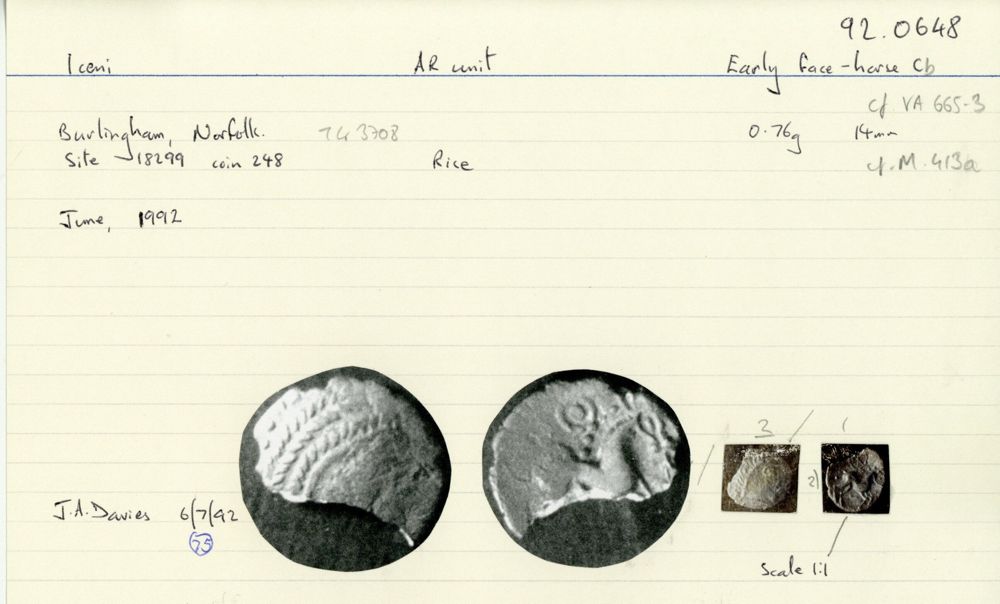 92.0648
Iceni AR unit Early face-horse Cb
cf. VA 665-3
Burlingham, Norfolk. TG 3708 0.76g 14mm
Site 18299 coin 248 Rice cf. M. 413a
June, 1992
3 1
2)
J.A. Davies 6/7/92
75
Scale 1:1